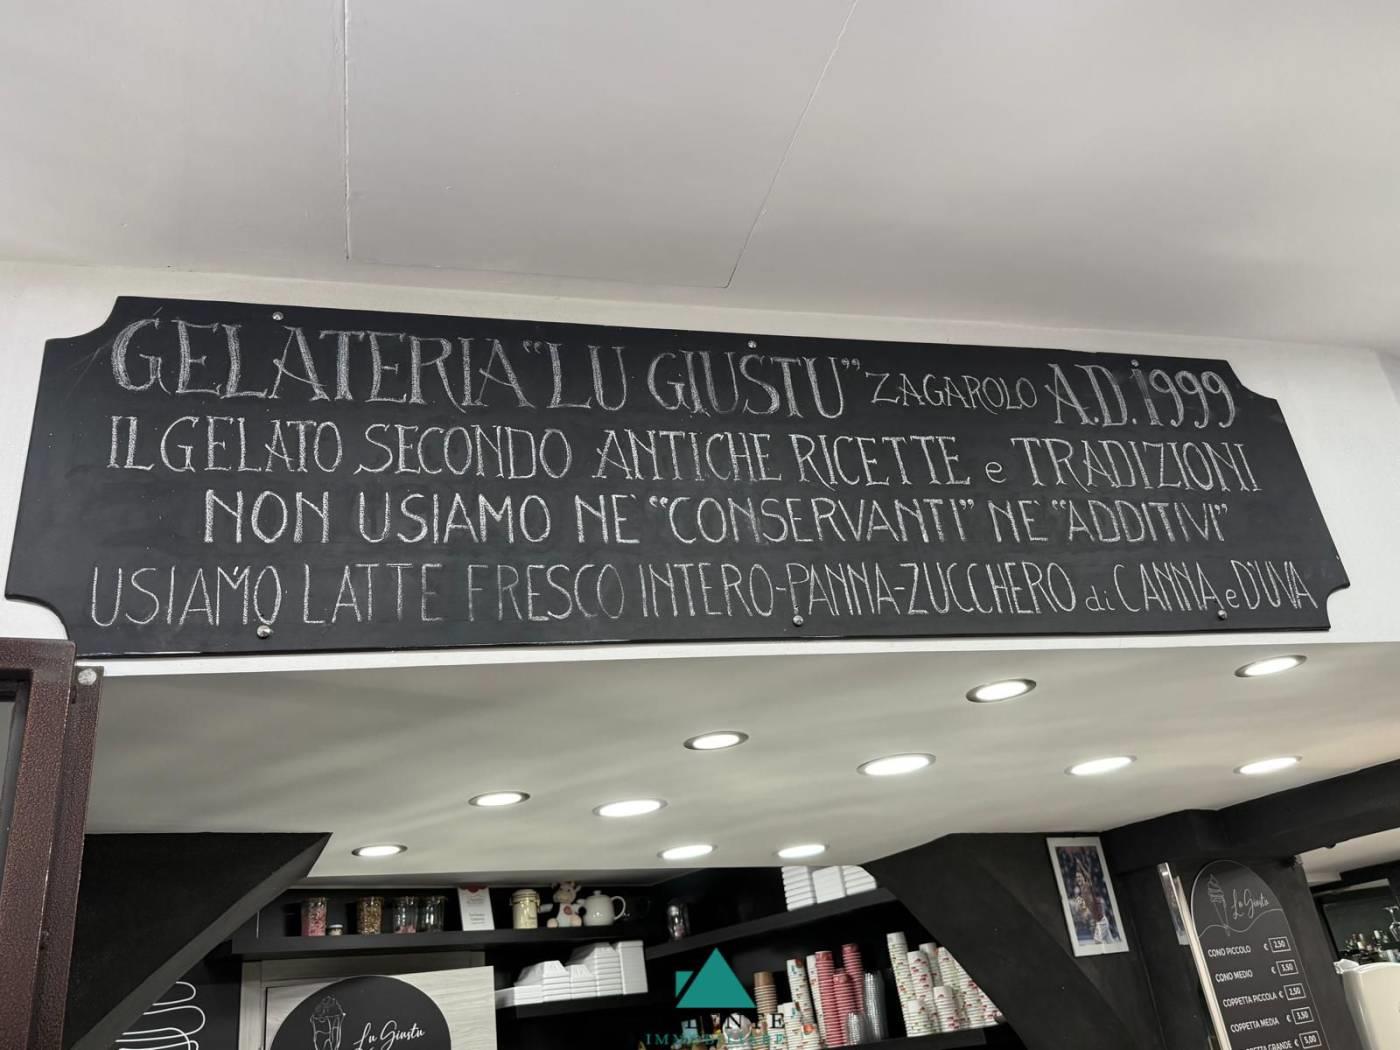 GELATERIA "LU GIUSTU" ZAGAROLO A.D. 1999
IL GELATO SECONDO ANTICHE RICETTE e TRADIZIONI
NON USIAMO NE' "CONSERVANTI" NE "ADDITIVI"
USIAMO LATTE FRESCO INTERO-PANNA-ZUCCHERO di CANNA e D'UVA
Lu Giustu
CONO PICCOLO € 2,50
CONO MEDIO € 3,50
COPPETTA PICCOLA € 2,50
COPPETTA MEDIA € 3,50
COPPETTA GRANDE € 5,00
Lu Giustu
IMMOBILIARE